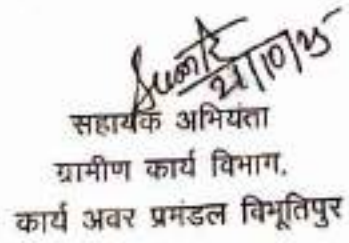 Sumit
21/10/25
सहायक अभियंता
ग्रामीण कार्य विभाग,
कार्य अवर प्रमंडल विभूतिपुर